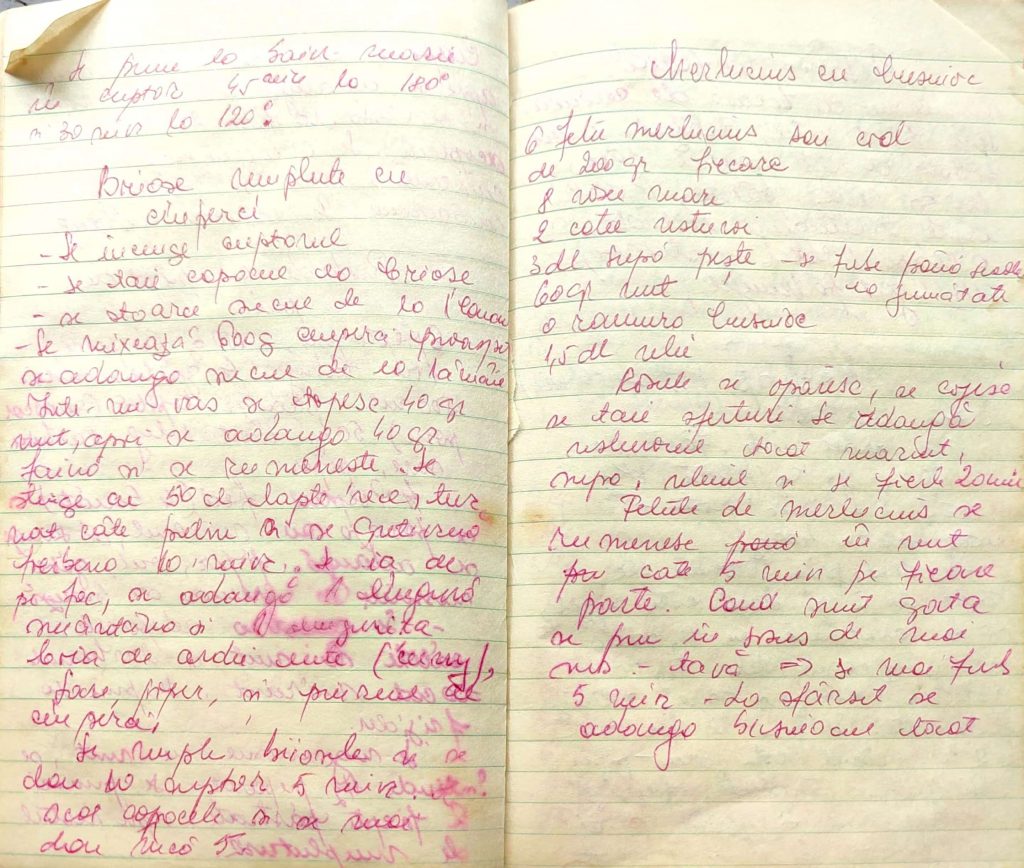 Se pune la bain-marie
în cuptor 45 min la 180°
și 30 min la 120°
Brioșe umplute cu
ciuperci
- Se încinge cuptorul
- se taie capacul la brioșe
- se stoarce sucul de la 1
- Se mixează 600g ciuperci
se adaugă sucul de la lămâie
Într-un vas se topesc 40 gr
unt, apoi se adaugă 40 gr
făină și se rumenește. Se
stinge cu 50 cl lapte rece, tur
nat câte puțin și se
fierbând 10 min. Se ia de
pe foc, se adaugă 1 lingură
și 1
de (curry),
sare, piper, și piureul de
ciuperci,
Se umple brioșele și se
dau la cuptor 5 min
scot capacele și se mai
dau încă 5
Merlucius cu busuioc
6 felii merlucius sau cod
de 200 gr fiecare
8 roșii mari
2 căței usturoi
3 dl supă pește - se fierbe până scade
60 gr unt la jumătate
o ramură busuioc
1,5 dl ulei
Roșiile se opăresc, se cojesc
se taie sferturi. Se adaugă
usturoiul tocat mărunt,
supa, uleiul și se fierb 20 min
Feliile de merlucius se
rumenesc până în unt
câte 5 min pe fiecare
parte. Când sunt gata
se pun în sosul de roșii
- tavă => se mai fierb
5 min - La sfârșit se
adaugă busuiocul tocat